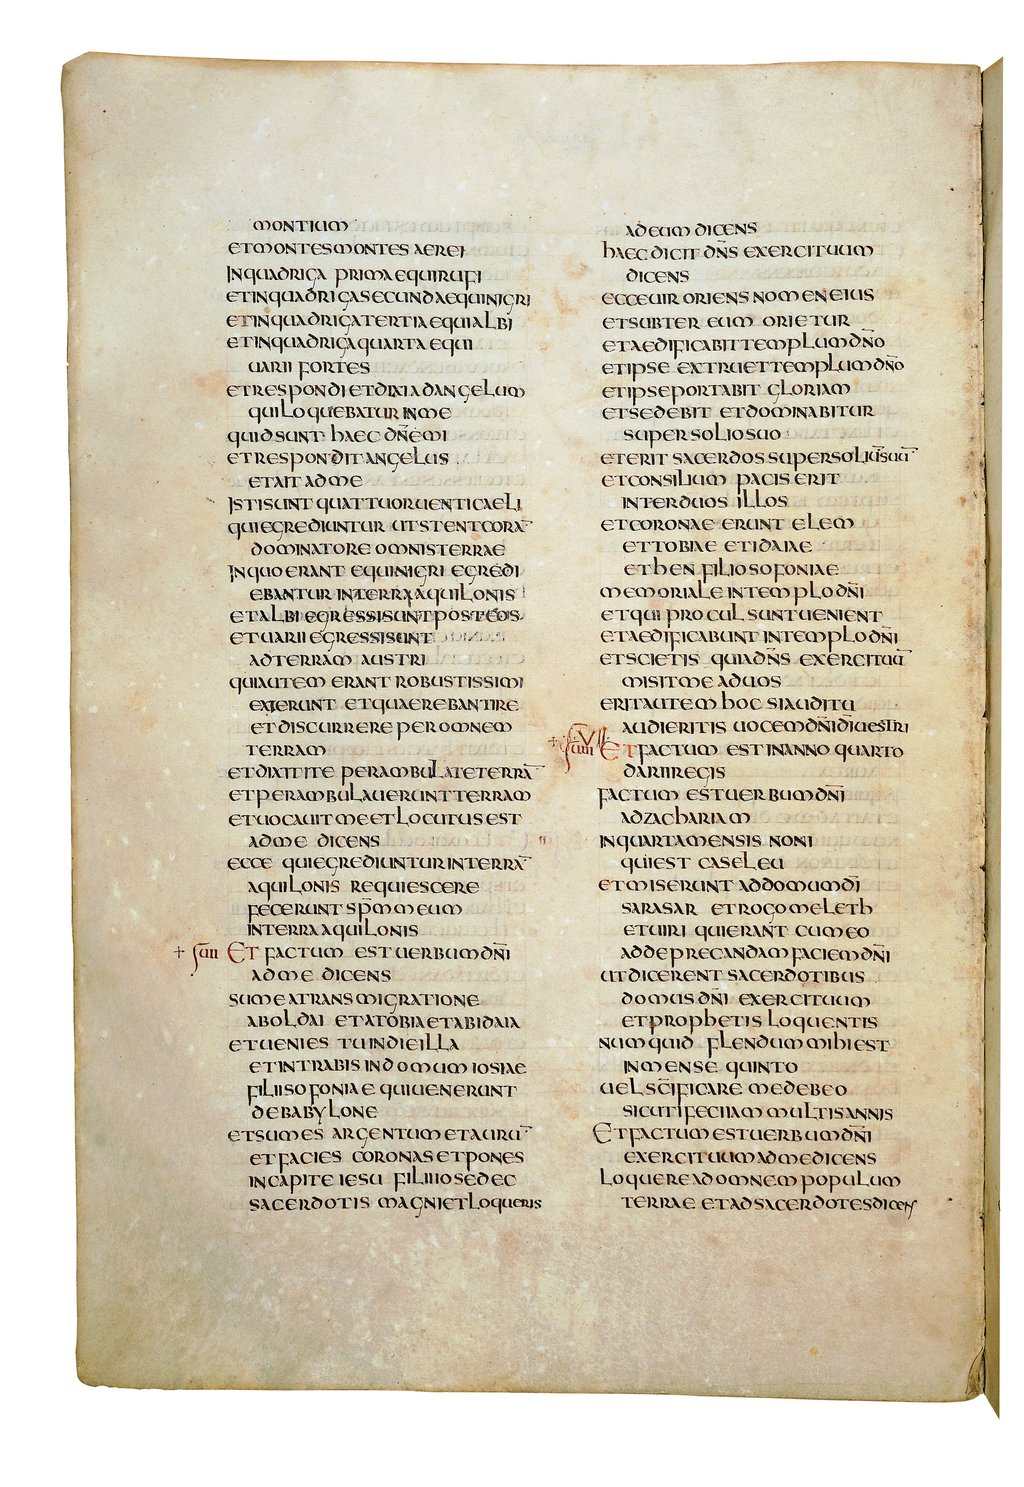 montium
et montes montes aerei
in quadriga prima equi rufi
et in quadriga secunda equi nigri
et in quadriga tertia equi albi
et in quadriga quarta equi
uarii fortes
et respondi et dixi ad angelum
qui loquebatur in me
quid sunt haec dn̄e mi
et respondit angelus
et ait ad me
isti sunt quattuor uenti caeli
qui egrediuntur ut stent corā
dominatore omnis terrae
in quo erant equi nigri egredi
ebantur in terra aquilonis
et albi egressi sunt post eos
et uarii egressi sunt
ad terram austri
qui autem erant robustissimi
exierunt et quaerebant ire
et discurrere per omnem
terram
et dixit ite perambulate terrā
et perambulauerunt terram
et uocauit me et locutus est
ad me dicens
ecce qui egrediuntur in terrā
aquilonis requiescere
fecerunt sp̄m meum
in terra aquilonis
Et factum est uerbum dn̄i
ad me dicens
sume a transmigratione
ab oldai et a tobia et ab idaia
et uenies tu in die illa
et intrabis in domum iosiae
filii sofoniae qui uenerunt
de babylone
et sumes argentum et aurū
et facies coronas et pones
in capite iesu filii iosedec
sacerdotis magni et loqueris
ad eum dicens
haec dicit dn̄s exercituum
dicens
ecce uir oriens nomen eius
et subter eum orietur
et aedificabit templum dn̄o
et ipse extruet templum dn̄o
et ipse portabit gloriam
et sedebit et dominabitur
super solio suo
et erit sacerdos super soliū suū
et consilium pacis erit
inter duos illos
et coronae erunt elem
et tobiae et idaiae
et hen filio sofoniae
memoriale in templo dn̄i
et qui procul sunt uenient
et aedificabunt in templo dn̄i
et scietis quia dn̄s exercituū
misit me ad uos
erit autem hoc si auditu
audieritis uocem dn̄i dī uestri
Et factum est in anno quarto
darii regis
factum est uerbum dn̄i
ad zachariam
in quarta mensis noni
qui est caseleu
et miserunt ad domum dī
sarasar et rogomelech
et uiri qui erant cum eo
ad deprecandam faciem dn̄i
ut dicerent sacerdotibus
domus dn̄i exercituum
et prophetis loquentis
numquid flendum mihi est
in mense quinto
uel sc̄ificare me debeo
sicuti feci iam multis annis
Et factum est uerbum dn̄i
exercituum ad me dicens
loquere ad omnem populum
terrae et ad sacerdotes dicens